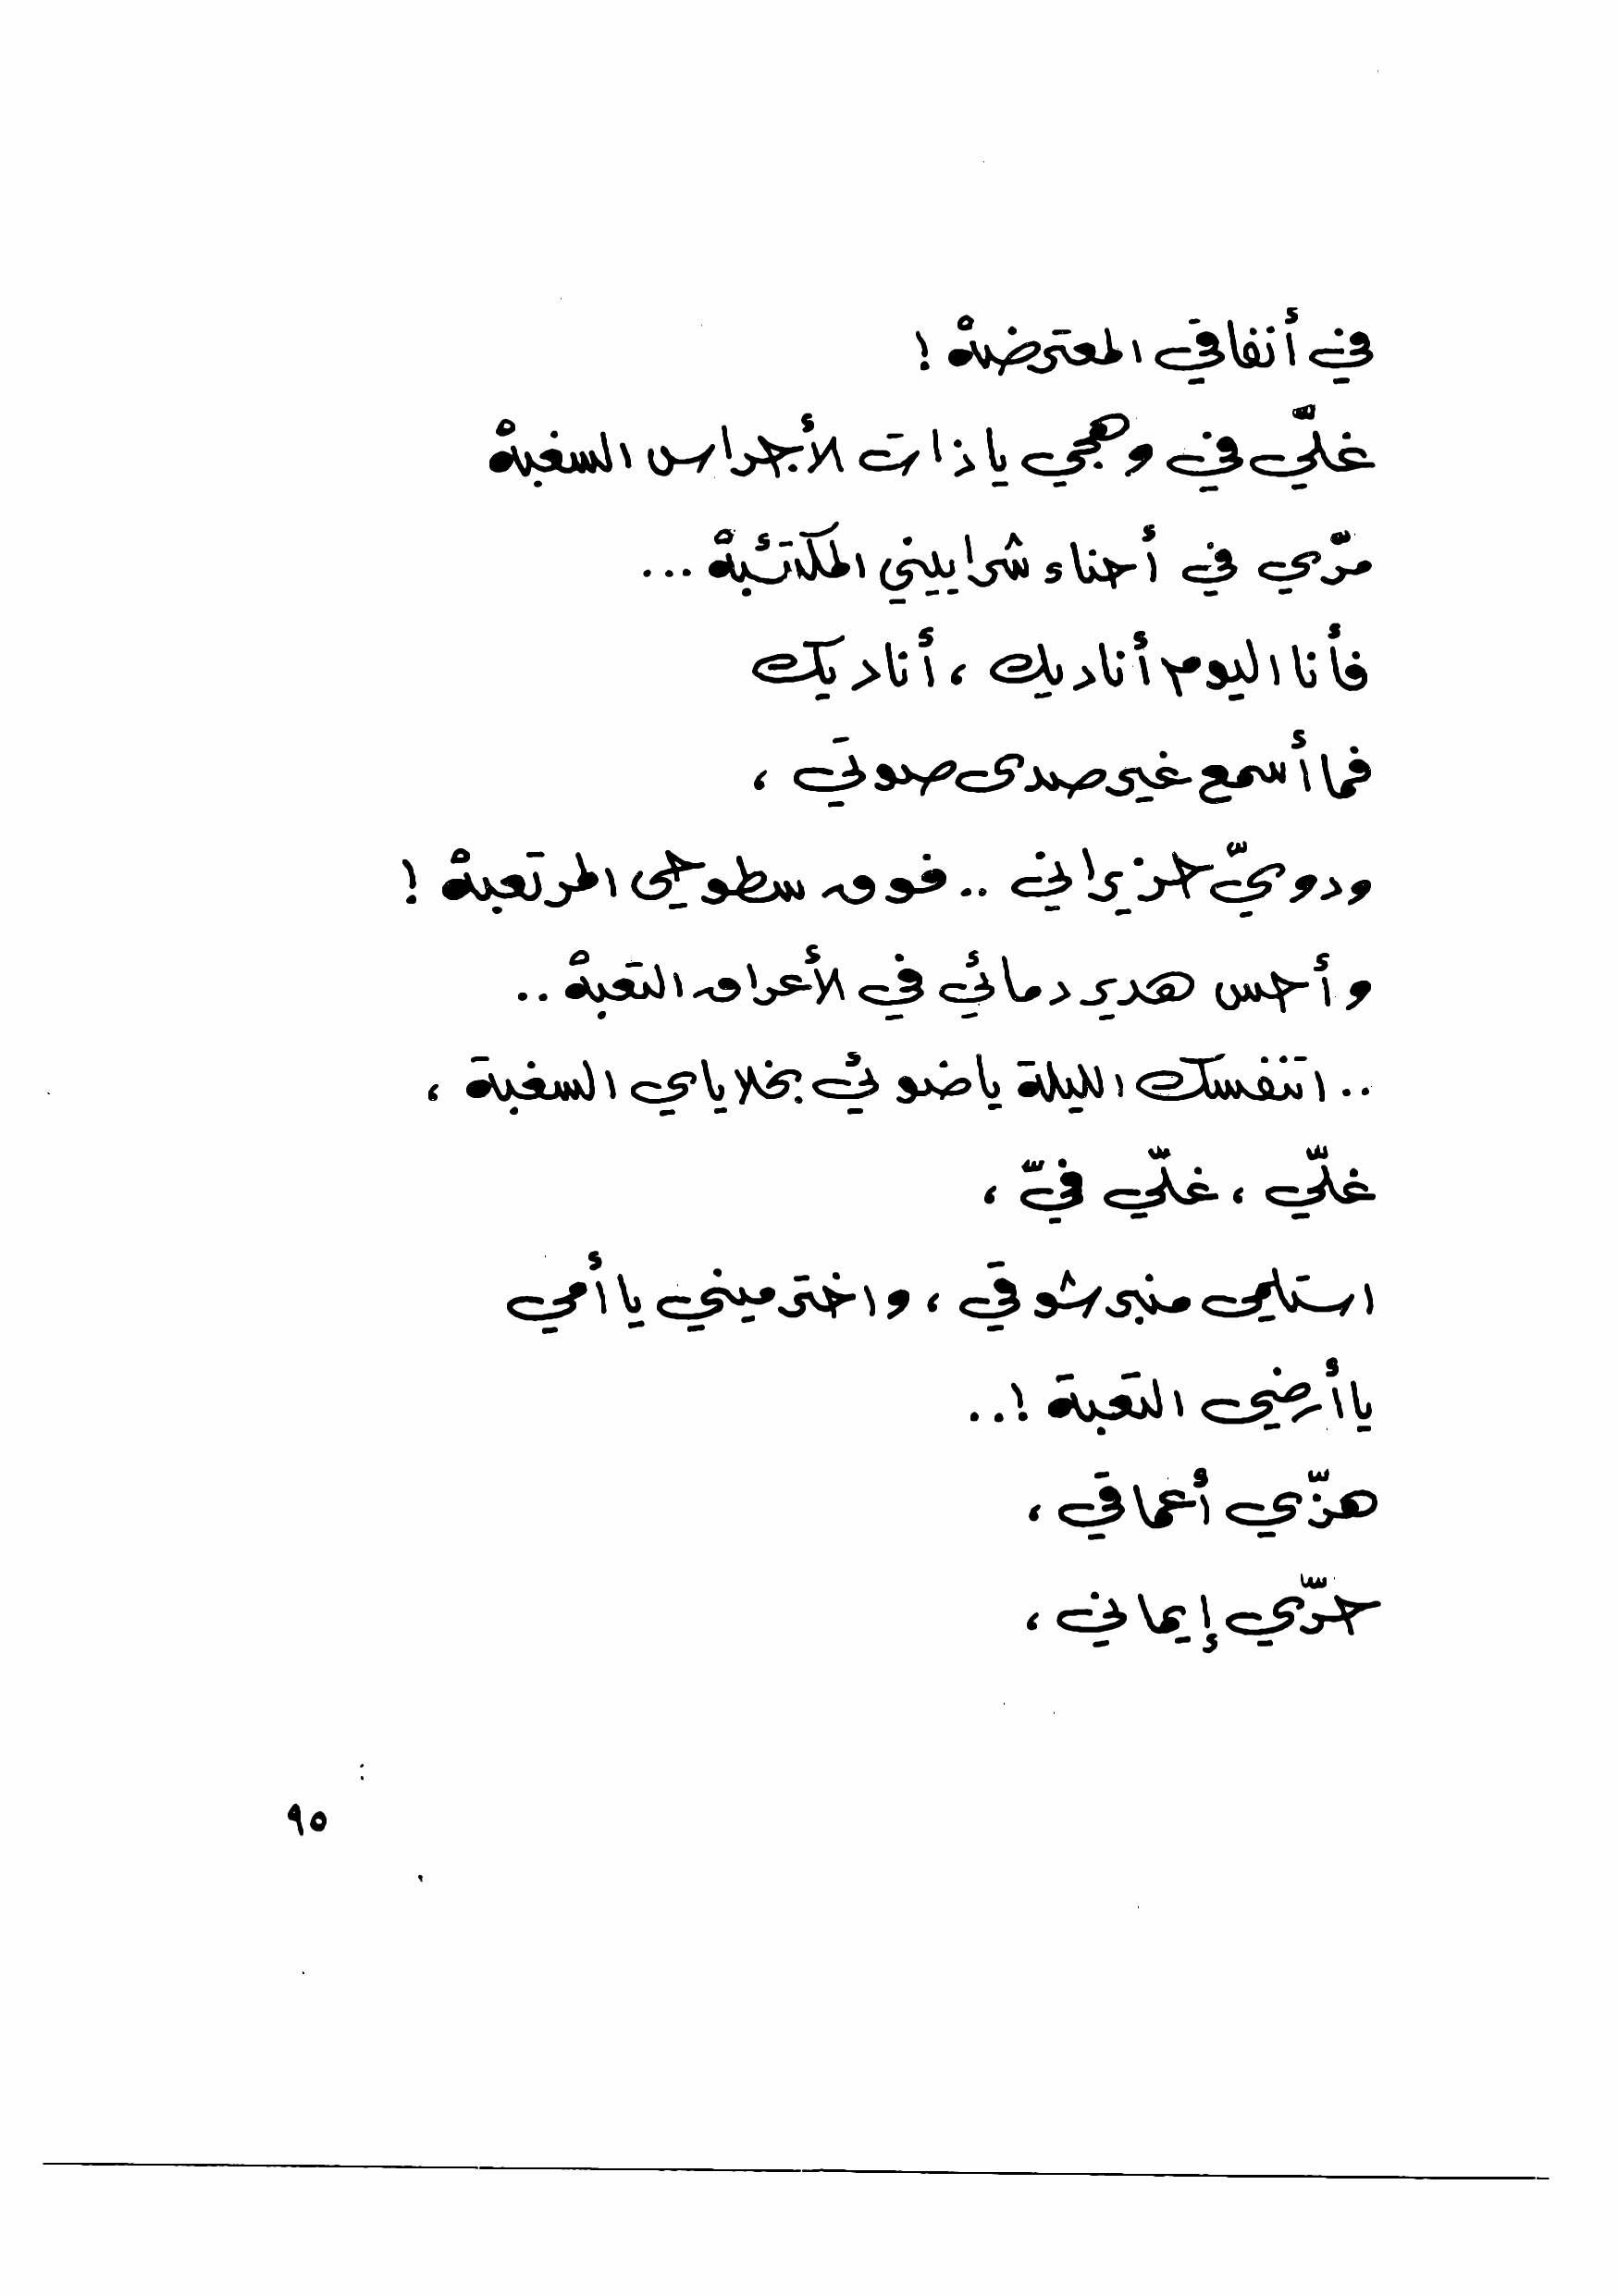 في أنفاقي المعترضهْ !
غلّي في وهجي يا ذات الأجراس السغبهْ
مرّي في أحناء شراييني المكتئبهْ ...
فأنا اليوم أناديك ، أناديك
فما أسمع غير صدى صوتي ،
ودويّ حزيراني .. فوق سطوحي المرتعبهْ !
وأحس هدير دمائي في الأعراق التعبهْ ..
.. اتنفسك الليلة يا ضوئي بخلاياي السغبة ،
غلّي ، غلّي فيّ ،
استلمي منبر شوقي ، واخترميني يا أمي
يا أرضي التعبة !..
هزّي أعماقي ،
حرّي إيماني ،
٩٥